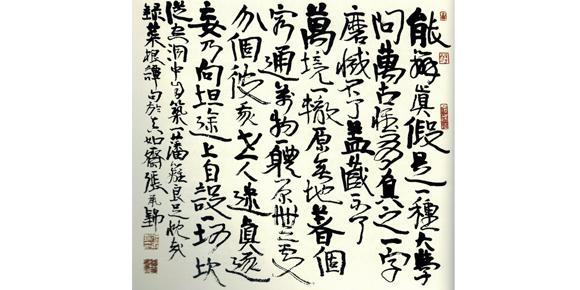 能辨真假是一種大學
問萬古惟有真之一字
磨滅不了蓋藏不了
萬境一轍原無地着個
窮通萬物一體原無處
分個彼我世人迷真逐
妄乃向坦途上自設一坷坎
從空洞中自築一藩籬良足慨哉
錄菜根譚句於 如齋張